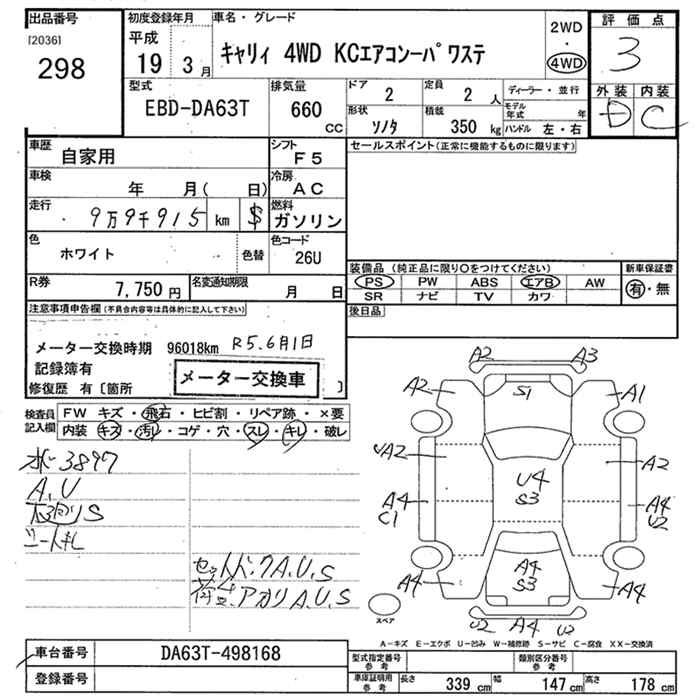 出品番号
[2036]
298
初度登録年月
平成
19 3月
車名・グレード
キャリィ 4WD KCエアコンーパワステ
2WD
・
4WD
評価点
3
外装 内装
D C
型式
EBD-DA63T
排気量
660
CC
ドア
2
定員
2 人
形状
ソノタ
積載
350 kg
ディーラー・並行
モデル年式 年
ハンドル 左・右
車歴 自家用
シフト F5
セールスポイント(正常に機能するものに限ります)
車検 年 月( 日)
冷房 AC
走行 9万9千915 km $
燃料 ガソリン
色 ホワイト 色替
色コード 26U
装備品(純正品に限り○をつけてください)
PS PW ABS エアB AW
SR ナビ TV カワ
新車保証書
有・無
R券 7,750円
名変通知期限 月 日
後日品
注意事項申告欄(不具合内容は具体的に記入して下さい)
メーター交換時期 96018km R5.6月1日
記録簿有
修復歴 有〔箇所 〕
メーター交換車
検査員記入欄
FW キズ・飛石・ヒビ割・リペア跡・×要
内装 キズ・汚レ・コゲ・穴・スレ・キレ・破レ
3897
A,U
S
A.U.S
アカリA.U.S
A2 A3
A2 S1 A1
UA2 A2
U4
S3
A4 A4
C1 U2
A4
S3
A4 A4
スペア
U2 A4 U2
A-キズ E-エクボ U-凹み W-補修跡 S-サビ C-腐食 XX-交換済
車台番号 DA63T-498168
登録番号
型式指定番号
参考
類別区分番号
参考
車庫証明用
参考
長さ 339 cm 幅 147 cm 高さ 178 cm